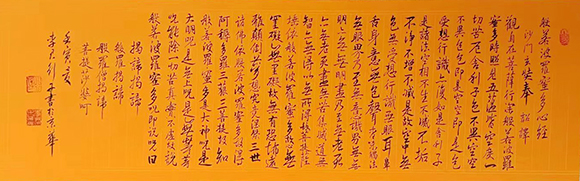 般若波羅蜜多心經
沙門玄奘奉 詔譯
觀自在菩薩行深般若波羅
蜜多時照見五蘊皆空度一
切苦厄舍利子色不異空空
不異色色即是空空即是色
受想行識亦復如是舍利子
是諸法空相不生不滅不垢
不淨不增不減是故空中無
色無受想行識無眼耳鼻
舌身意無色聲香味觸法
無眼界乃至無意識界無無
明亦無無明盡乃至無老死
亦無老死盡無苦集滅道無
智亦無得以無所得故菩提薩
埵依般若波羅蜜多故心無
罣礙無罣礙故無有恐怖遠
離顛倒夢想究竟涅槃三世
諸佛依般若波羅蜜多故得
阿耨多羅三藐三菩提故知
般若波羅蜜多是大神咒是
大明咒是無上咒是無等等
咒能除一切苦真實不虛故說
般若波羅蜜多咒即說咒曰
揭諦揭諦
般羅揭諦
般羅僧揭諦
菩提薩婆訶
壬寅夏
李大 書於京華